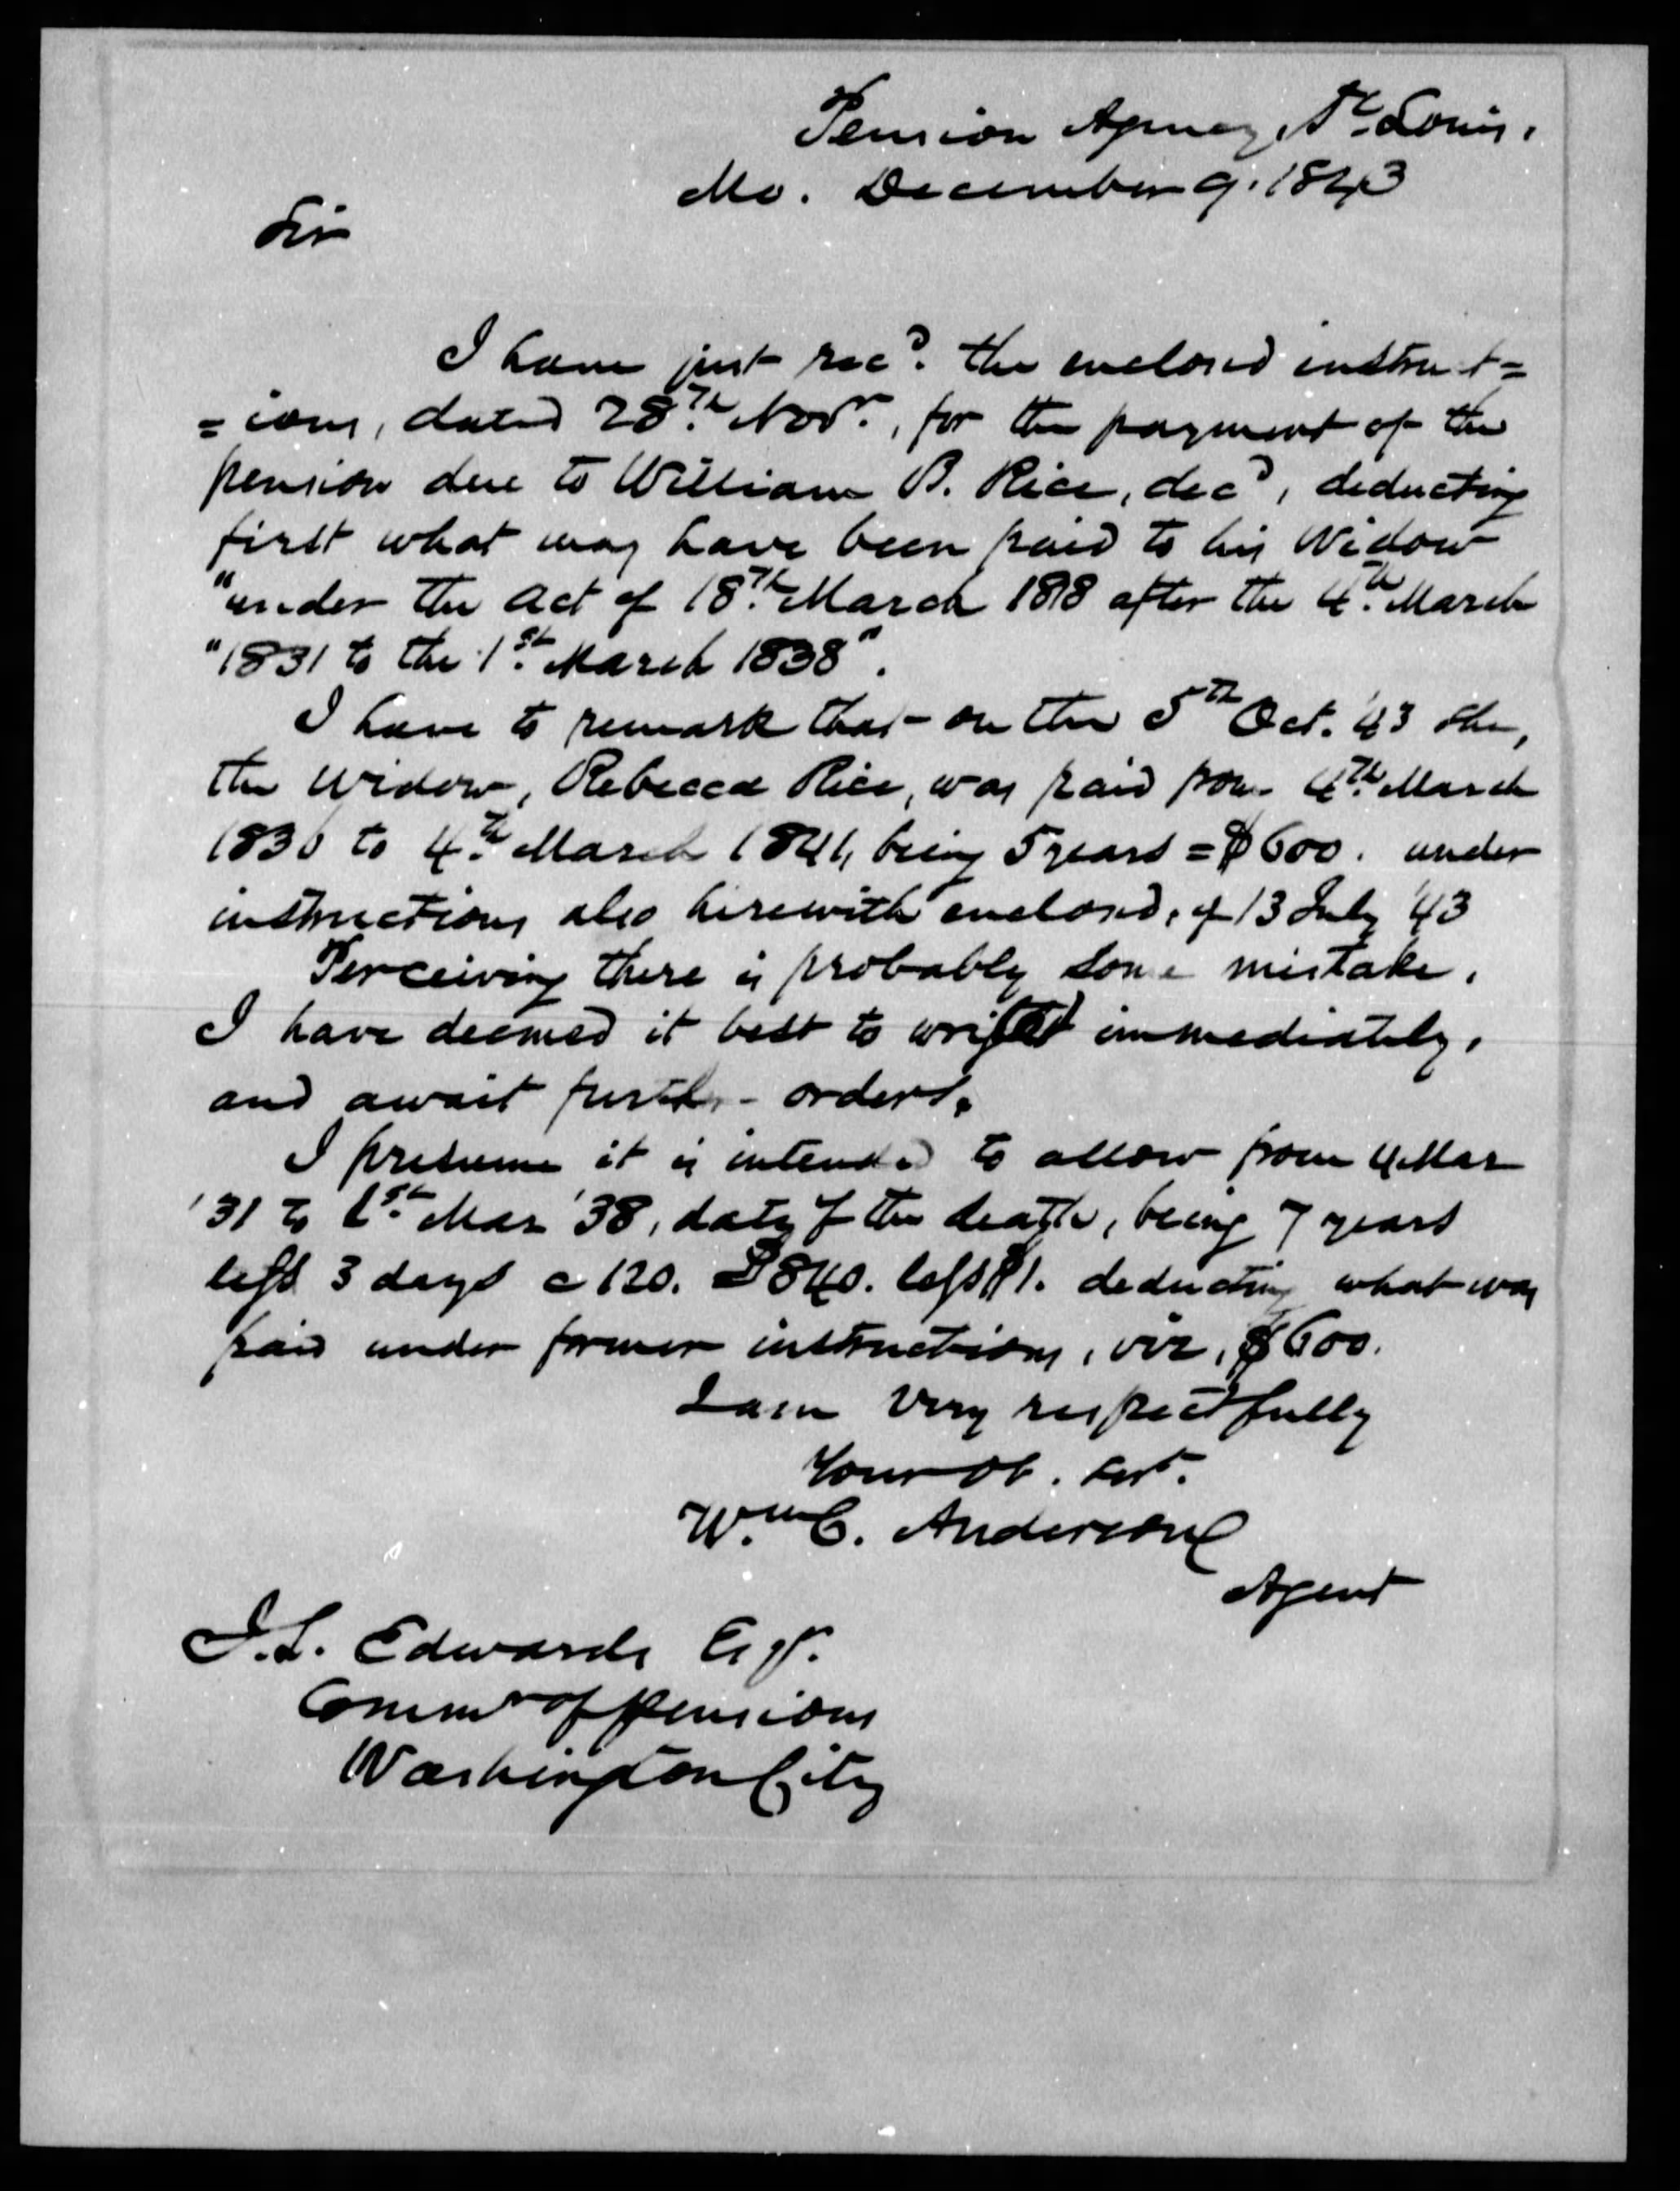 Pension Agency, St. Louis,
Mo. December 9. 1843
Sir
I have just recd. the enclosed instruct=
=ions, dated 28th. Novr., for the payment of the
pension due to William B. Rice, decd, deducting
first what may have been paid to his Widow
"under the act of 18th. March 1818 after the 4th. March
"1831 to the 1st. March 1838".
I have to remark that on the 5th Oct. '43 she,
the widow, Rebecca Rice, was paid from 4th. March
1836 to 4th. March 1841, being 5 years = $600. under
instructions also herewith enclosed, of 13 July '43
Perceiving there is probably some mistake,
I have deemed it best to write immediately,
and await further orders.
I presume it is intended to allow from 4 Mar
'31 to 1st. Mar '38, date of the death, being 7 years
less 3 days @ 120. $840. less $1. deducting what was
paid under former instructions, viz, $600.
I am very respectfully
Your Ob. Servt.
Wm. C. Anderson
Agent
J. L. Edwards Esqr.
Commr of Pensions
Washington City